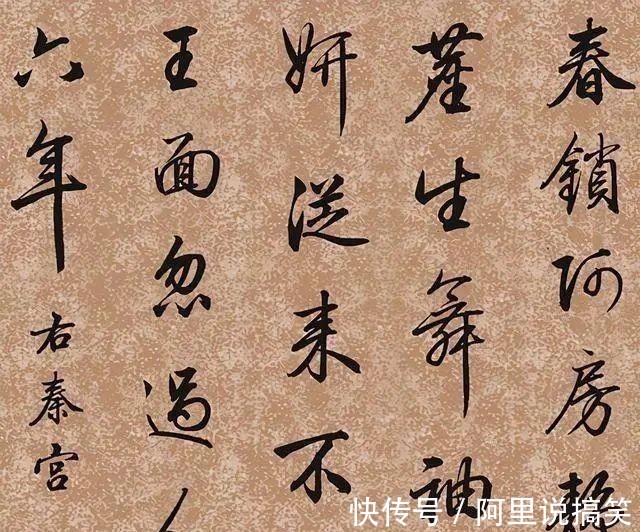 春鎖阿房
塵生舞袖
妍從来不
王面忽過
六年
右秦宮
快传号 / 阿里说搞笑